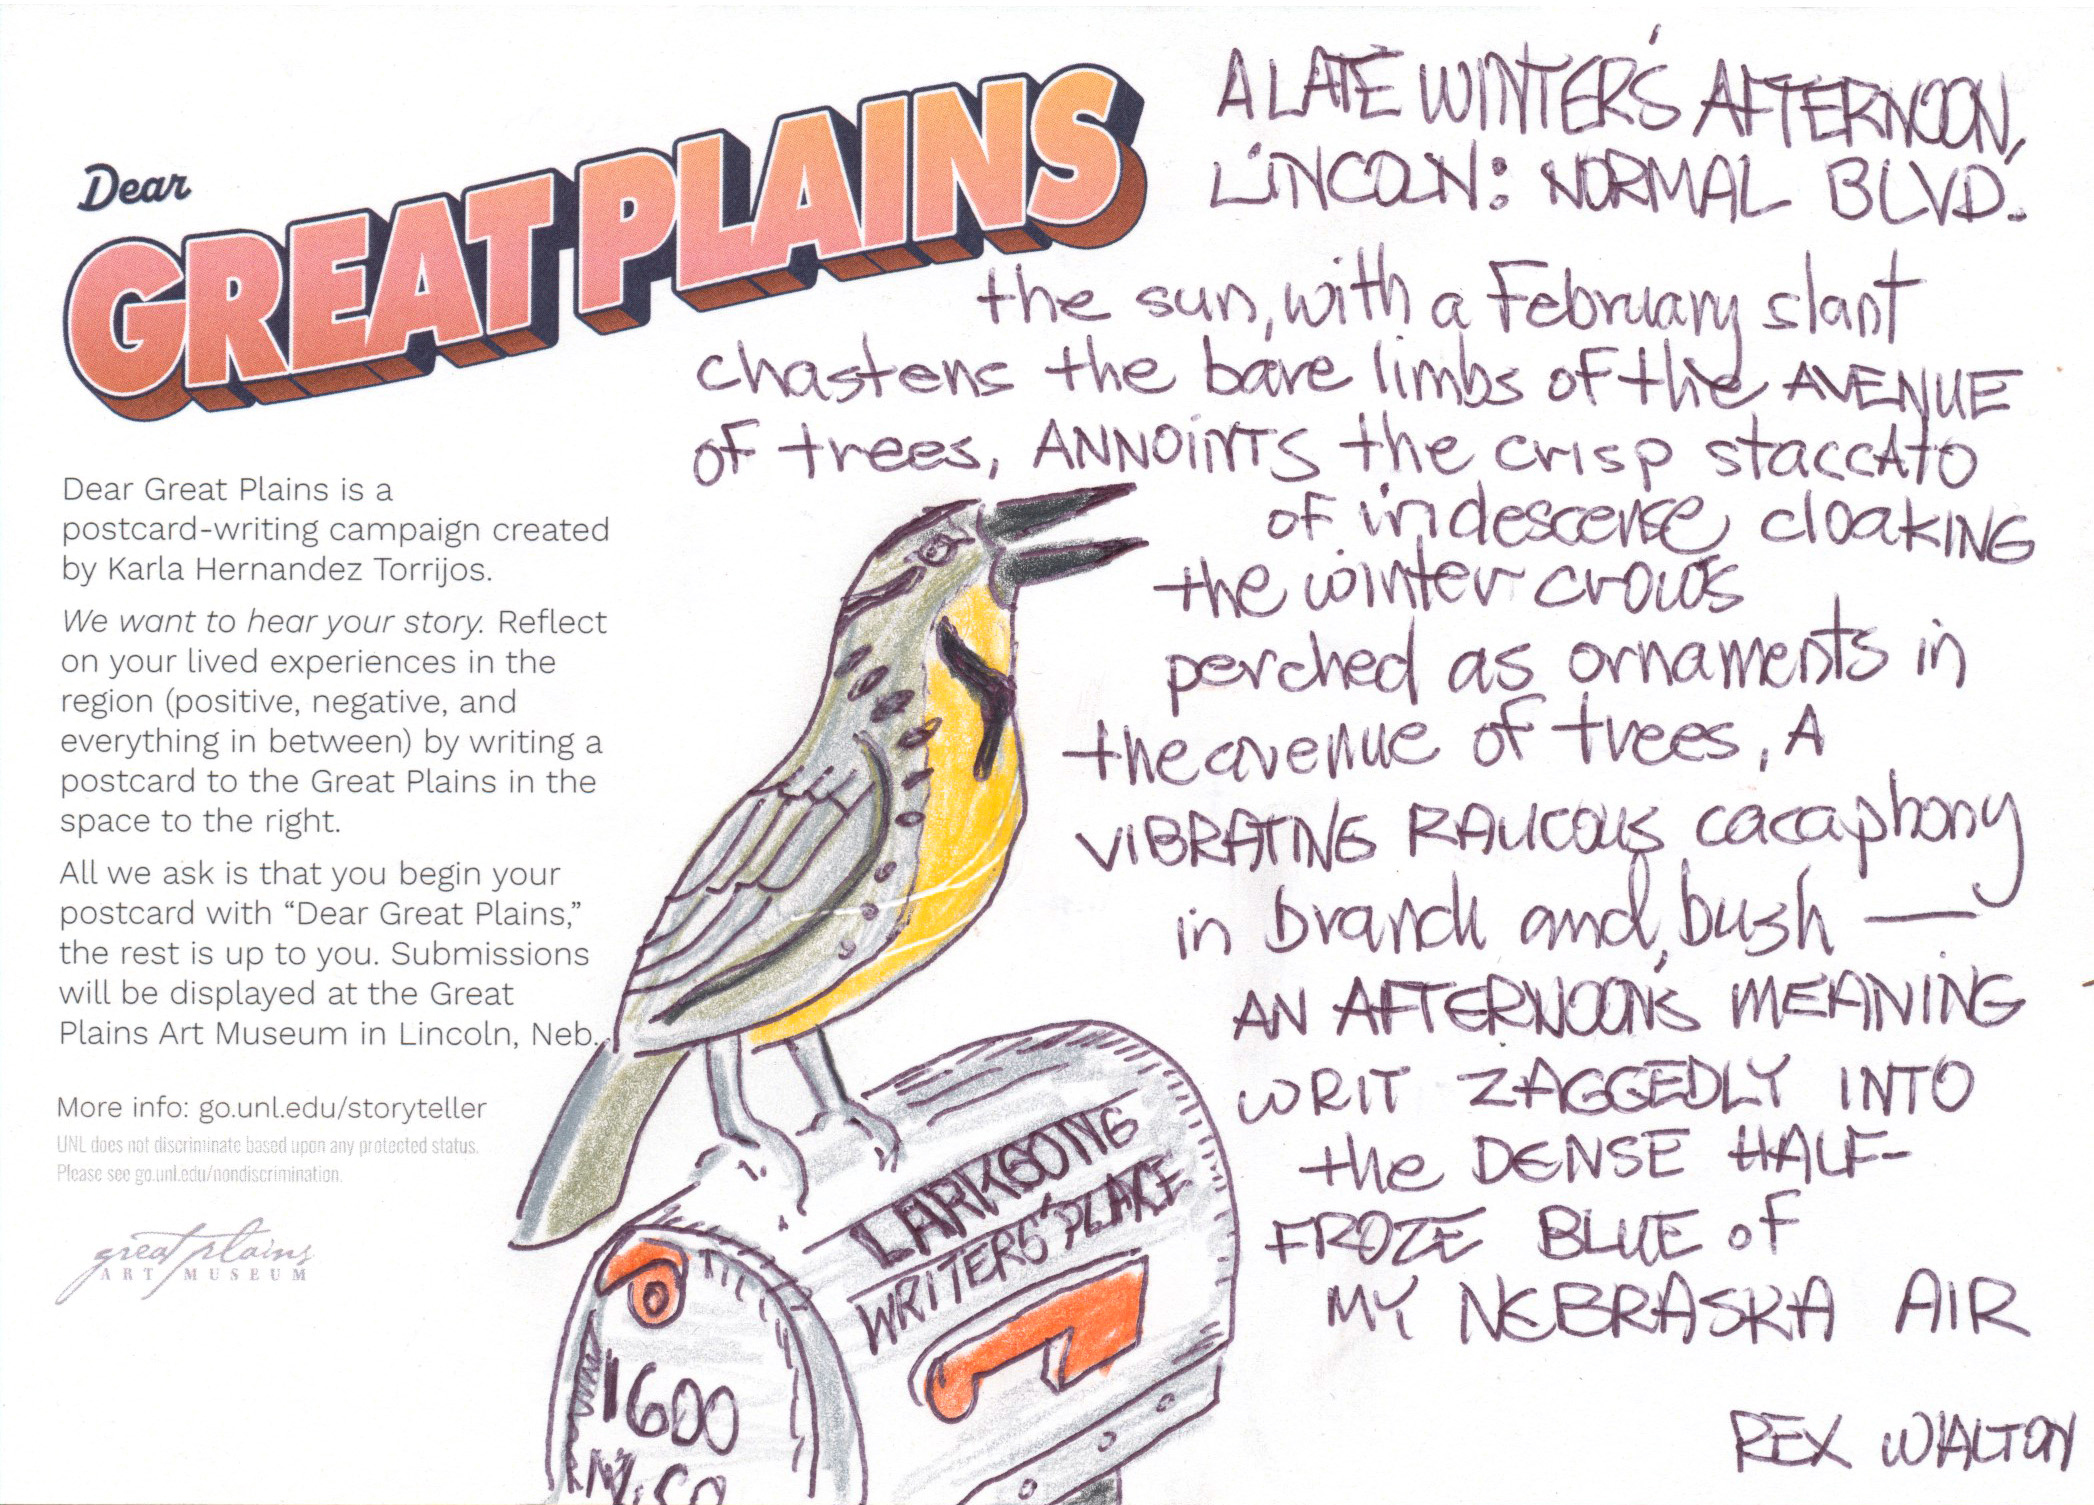 Dear
GREAT PLAINS
Dear Great Plains is a
postcard-writing campaign created
by Karla Hernandez Torrijos.
We want to hear your story. Reflect
on your lived experiences in the
region (positive, negative, and
everything in between) by writing a
postcard to the Great Plains in the
space to the right.
All we ask is that you begin your
postcard with “Dear Great Plains,”
the rest is up to you. Submissions
will be displayed at the Great
Plains Art Museum in Lincoln, Neb.
More info: go.unl.edu/storyteller
UNL does not discriminate based upon any protected status.
Please see go.unl.edu/nondiscrimination.
great plains
ART MUSEUM
A LATE WINTER'S AFTERNOON,
LINCOLN: NORMAL BLVD.
the sun, with a February slant
chastens the bare limbs of the AVENUE
of trees, ANNOINTS the crisp staccAto
of iridescense cloaKING
the winter crows
perched as ornaments in
the avenue of trees, A
VIBRATING RAUCOUS cacaphony
in branch and bush —
AN AFTERNOON'S MEANING
WRIT ZAGGEDLY INTO
the DENSE HALF-
FROZE BLUE of
MY NEBRASKA AIR
REX WALTON
LARKSONG
WRITERS' PLACE
1600